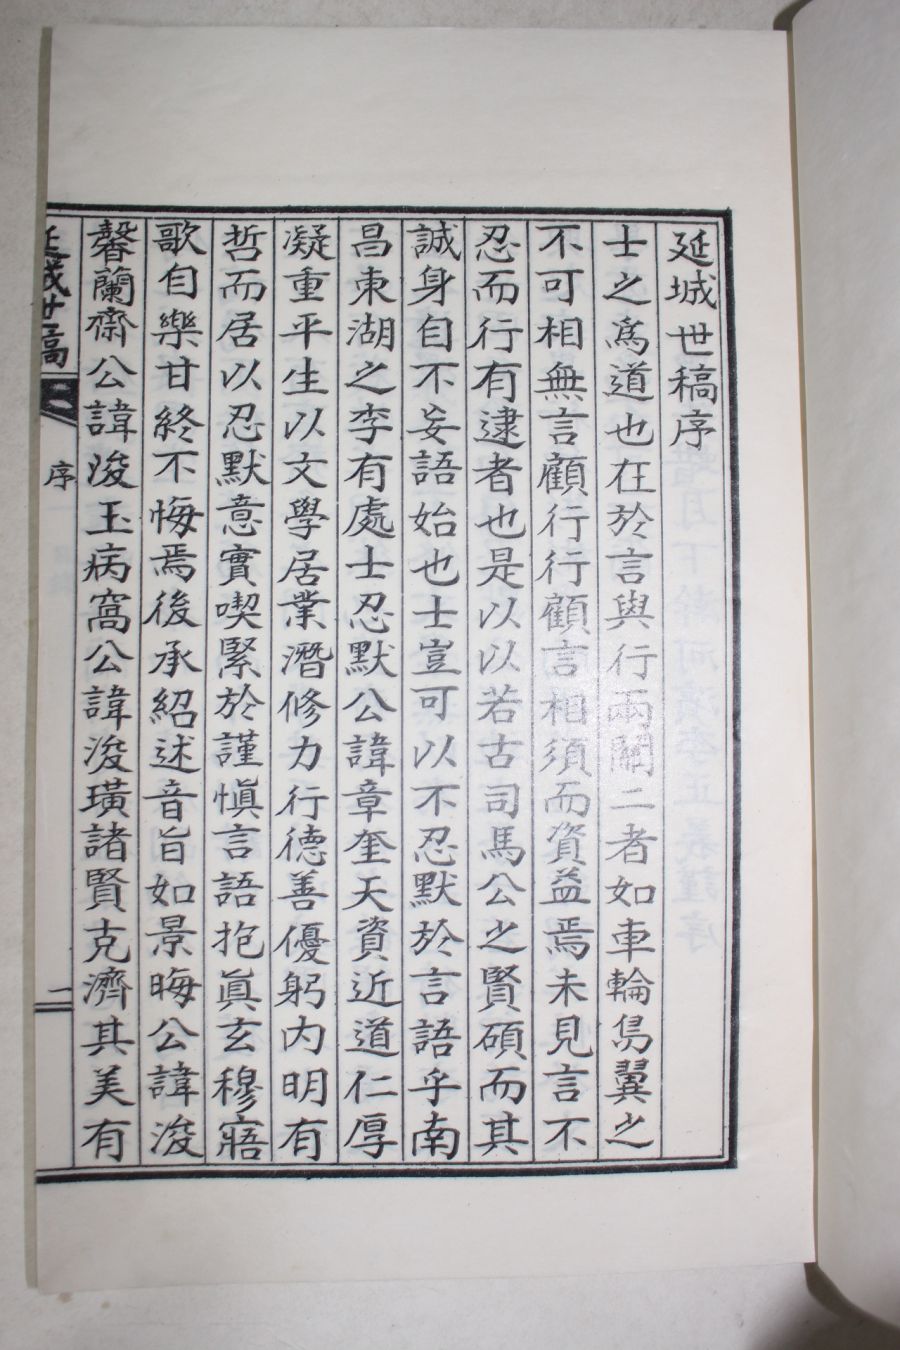 延城世稿序
士之爲道也在於言與行兩關二者如車輪鳥翼之
不可相無言顧行行顧言相須而資益焉未見言不
忍而行有逮者也是以以若古司馬公之賢碩而其
誠身自不妄語始也士豈可以不忍默於言語乎南
昌東湖之李有處士忍默公諱章奎天資近道仁厚
凝重平生以文學居業潛修力行德善優躬内明有
哲而居以忍默意實喫緊於謹愼言語抱眞玄穆寤
歌自樂甘終不悔焉後承紹述音旨如景晦公諱浚
馨蘭齋公諱浚玉病窩公諱浚璜諸賢克濟其美有
延城世稿
序
一